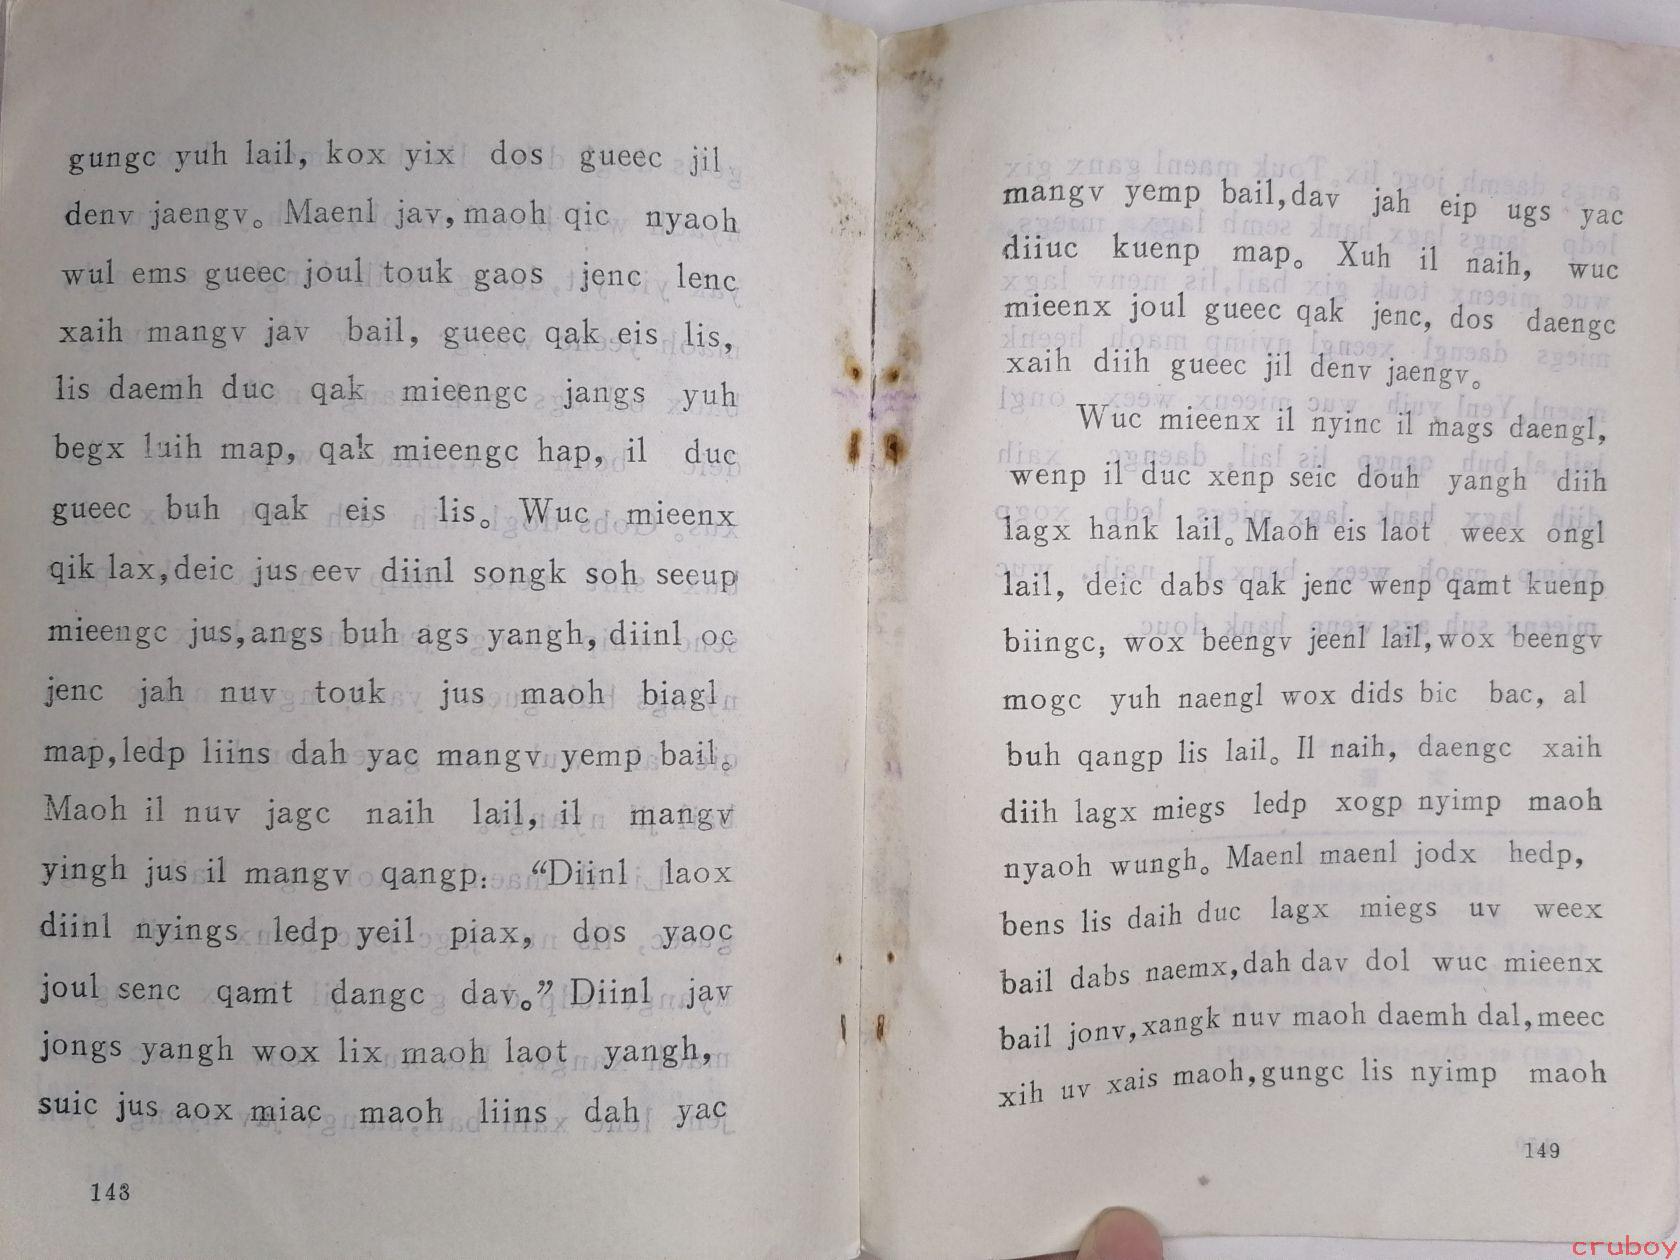 gungc yuh lail, kox yix dos gueec jil
denv jaengv。 Maenl jav, maoh qic nyaoh
wul ems gueec joul touk gaos jenc lenc
xaih mangv jav bail, gueec qak eis lis,
lis daemh duc qak mieengc jangs yuh
begx luih map, qak mieengc hap, il duc
gueec buh qak eis lis。 Wuc mieenx
qik lax, deic jus eev diinl songk soh seeup
mieengc jus, angs buh ags yangh, diinl oc
jenc jah nuv touk jus maoh biagl
map, ledp liins dah yac mangv yemp bail。
Maoh il nuv jagc naih lail, il mangv
yingh jus il mangv qangp: “Diinl laox
diinl nyings ledp yeil piax, dos yaoc
joul senc qamt dangc dav。” Diinl jav
jongs yangh wox lix maoh laot yangh,
suic jus aox miac maoh liins dah yac
148
mangv yemp bail, dav jah eip ugs yac
diiuc kuenp map。 Xuh il naih, wuc
mieenx joul gueec qak jenc, dos daengc
xaih diih gueec jil denv jaengv。
Wuc mieenx il nyinc il mags daengl,
wenp il duc xenp seic douh yangh diih
lagx hank lail。 Maoh eis laot weex ongl
lail, deic dabs qak jenc wenp qamt kuenp
biingc; wox beengv jeenl lail, wox beengv
mogc yuh naengl wox dids bic bac, al
buh qangp lis lail。 Il naih, daengc xaih
diih lagx miegs ledp xogp nyimp maoh
nyaoh wungh。 Maenl maenl jodx hedp,
bens lis daih duc lagx miegs uv weex
bail dabs naemx, dah dav dol wuc mieenx
bail jonv, xangk nuv maoh daemh dal, meec
xih uv xais maoh, gungc lis nyimp maoh
149
cruboy